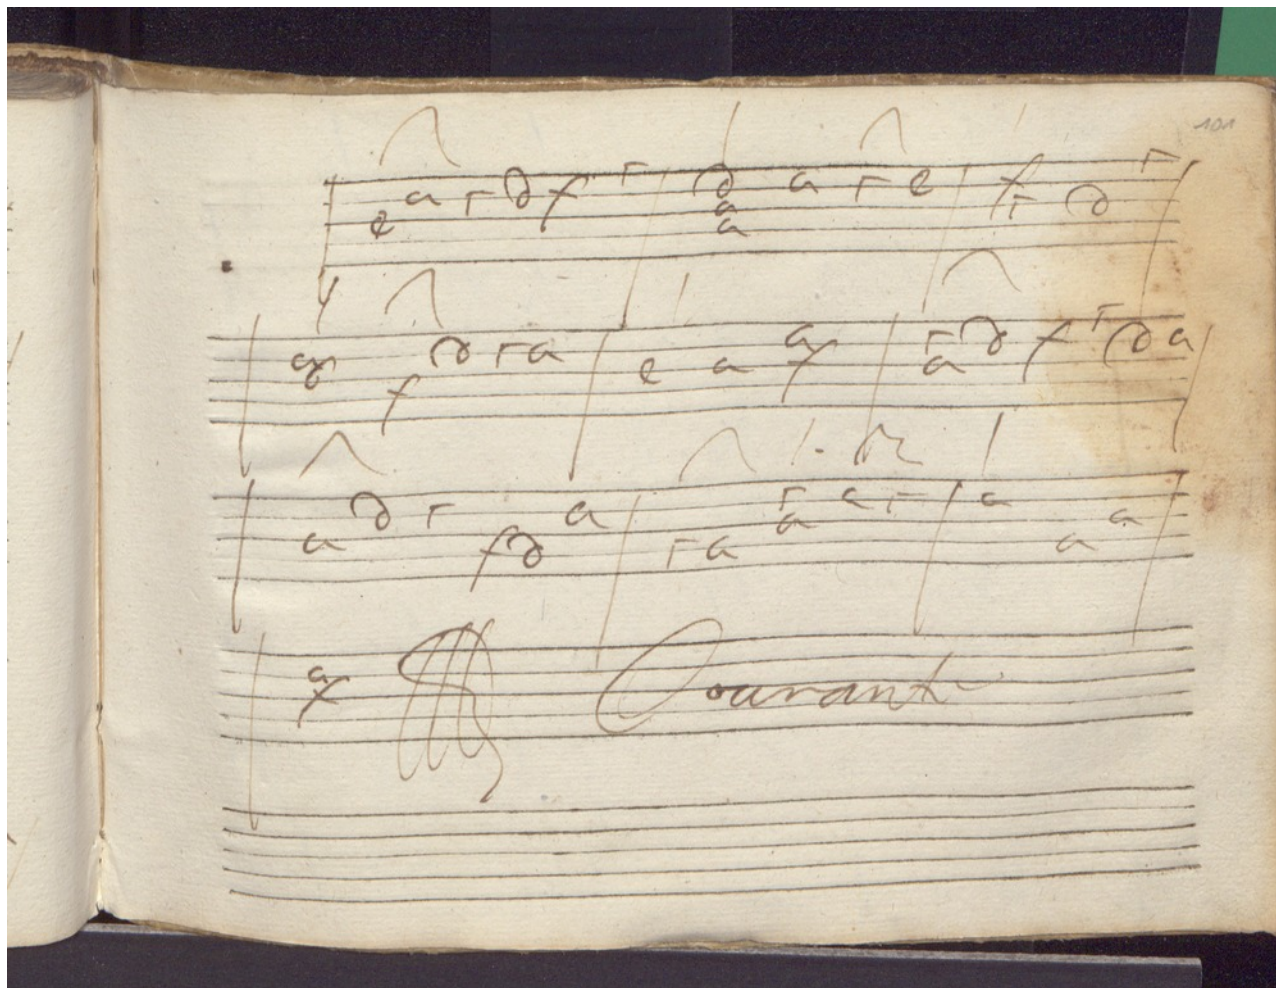 101
e a r d f r d a a a r e f r d r
a f d r a e a a r a d f r d a
a d r f d a r a r a a r a a a
a Courant